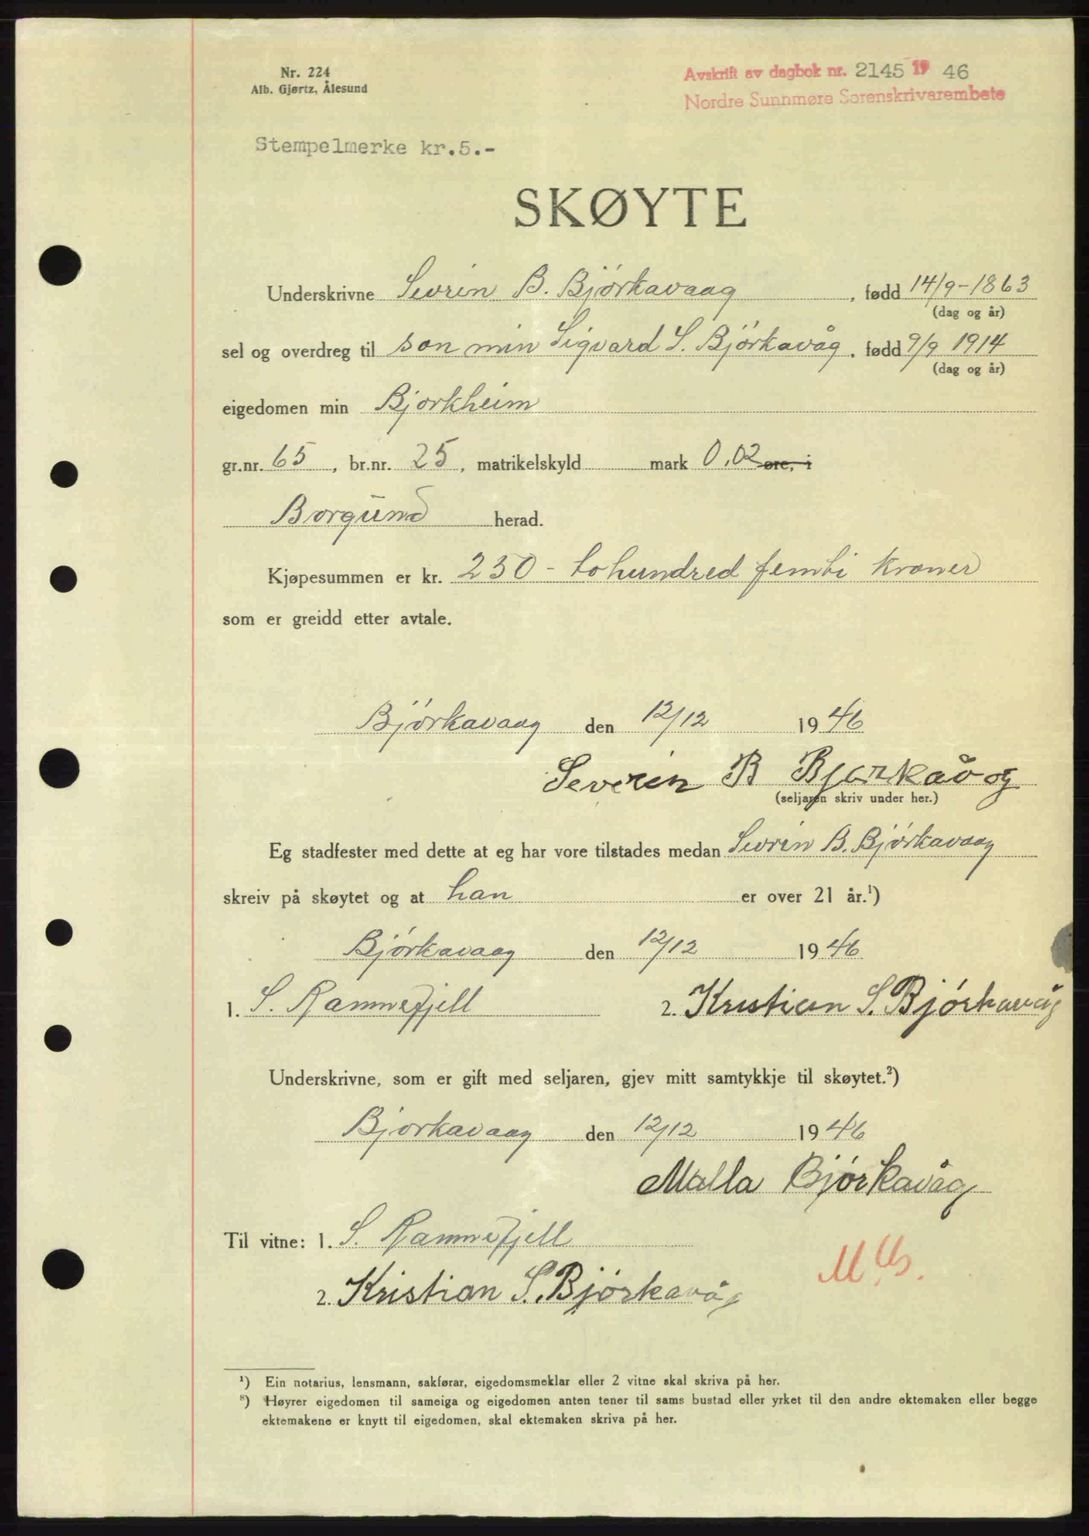 Nr. 224
Alb. Gjørtz, Ålesund
Avskrift av dagbok nr. 2145 19 46
Nordre Sunnmøre Sorenskrivarembete
Stempelmerke kr.5.-
SKØYTE
Underskrivne Sevrin B. Bjørkavaag, fødd 14/9-1863
(dag og år)
sel og overdreg til son min Sigvard S. Bjørkavåg, fødd 9/9 1914
(dag og år)
eigedomen min Bjorkheim
gr.nr. 65, br.nr. 25, matrikelskyld mark 0,02 øre, i
Borgund herad.
Kjøpesummen er kr. 250 - tohundred femti kroner
som er greidd etter avtale.
Bjørkavaag den 12/12 1946
Severin B Bjørkåvåg
(seljaren skriv under her.)
Eg stadfester med dette at eg har vore tilstades medan Sevrin B. Bjørkavaag
skreiv på skøytet og at han er over 21 år.¹)
Bjørkavaag den 12/12 1946
1. S. Ramnefjell 2. Kristian S. Bjørkavåg
Underskrivne, som er gift med seljaren, gjev mitt samtykkje til skøytet.²)
Bjorkavaag den 12/12 1946
Malla Bjørkavåg
Til vitne: 1. S. Ramnefjell
2. Kristian S. Bjørkavåg
¹) Ein notarius, lensmann, sakførar, eigedomsmeklar eller 2 vitne skal skriva på her.
²) Høyrer eigedomen til sameiga og eigedomen anten tener til sams bustad eller yrket til den andre ektemaken eller begge
ektemakene er knytt til eigedomen, skal ektemaken skriva på her.